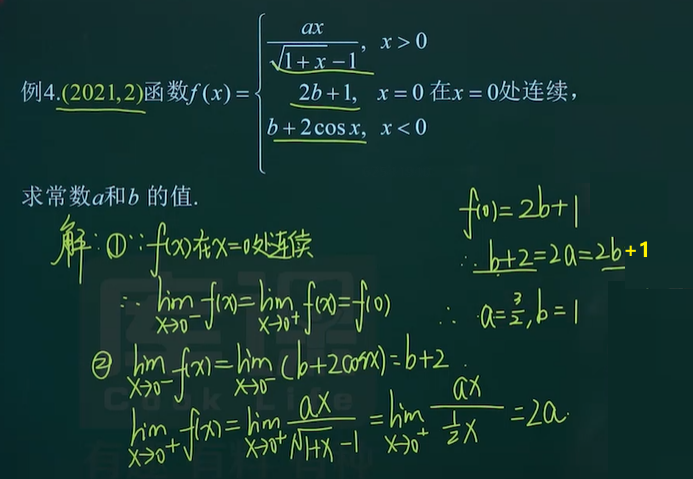 例4.(2021,2)函数f(x)={ax/(√(1+x)-1), x>0
2b+1, x=0 在x=0处连续,
b+2cosx, x<0
求常数a和b的值.
解:①∵f(x)在x=0处连续
∴lim_{x→0⁻}f(x)=lim_{x→0⁺}f(x)=f(0)
②lim_{x→0⁻}f(x)=lim_{x→0⁻}(b+2cosx)=b+2
lim_{x→0⁺}f(x)=lim_{x→0⁺}ax/(√(1+x)-1)=lim_{x→0⁺}ax/(½x)=2a.
f(0)=2b+1
∴b+2=2a=2b+1
∴a=3/2,b=1